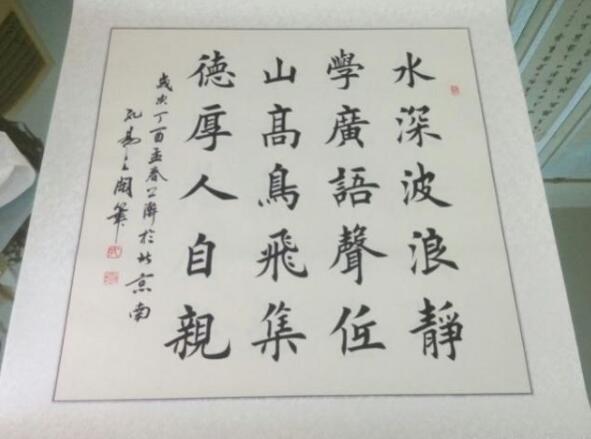 水深波浪靜
學廣語聲低
山髙鳥飛集
德厚人自親
歲次丁酉孟春之際於北京南
孔易之筆